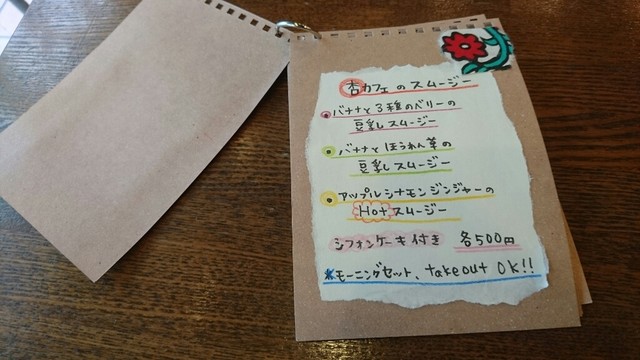 杏カフェのスムージー
バナナと3種のベリーの
豆乳スムージー
バナナとほうれん草の
豆乳スムージー
アップルシナモンジンジャーの
Hotスムージー
シフォンケーキ付き 各500円
*モーニングセット、takeout OK!!